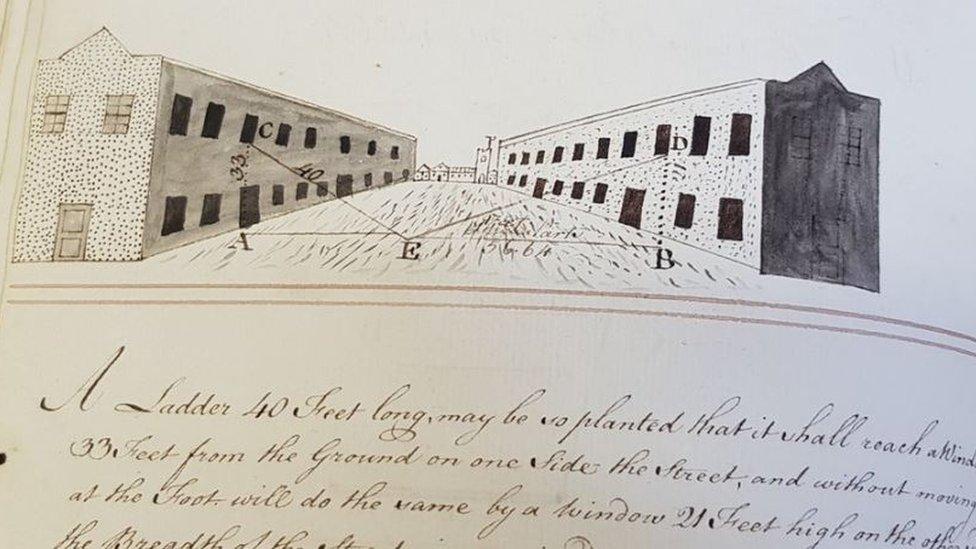 C
D
33
40
21
A
E
B
A Ladder 40 Feet long, may be so planted that it shall reach a Wind
33 Feet from the Ground on one Side the Street, and without moving
at the Foot will do the same by a Window 21 Feet high on the other
the Breadth of the Street